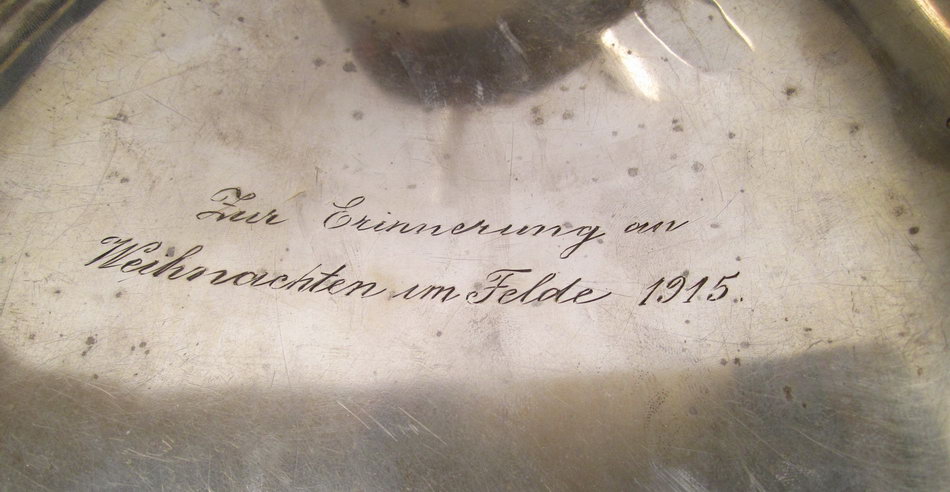 Zur Erinnerung an
Weihnachten im Felde 1915.